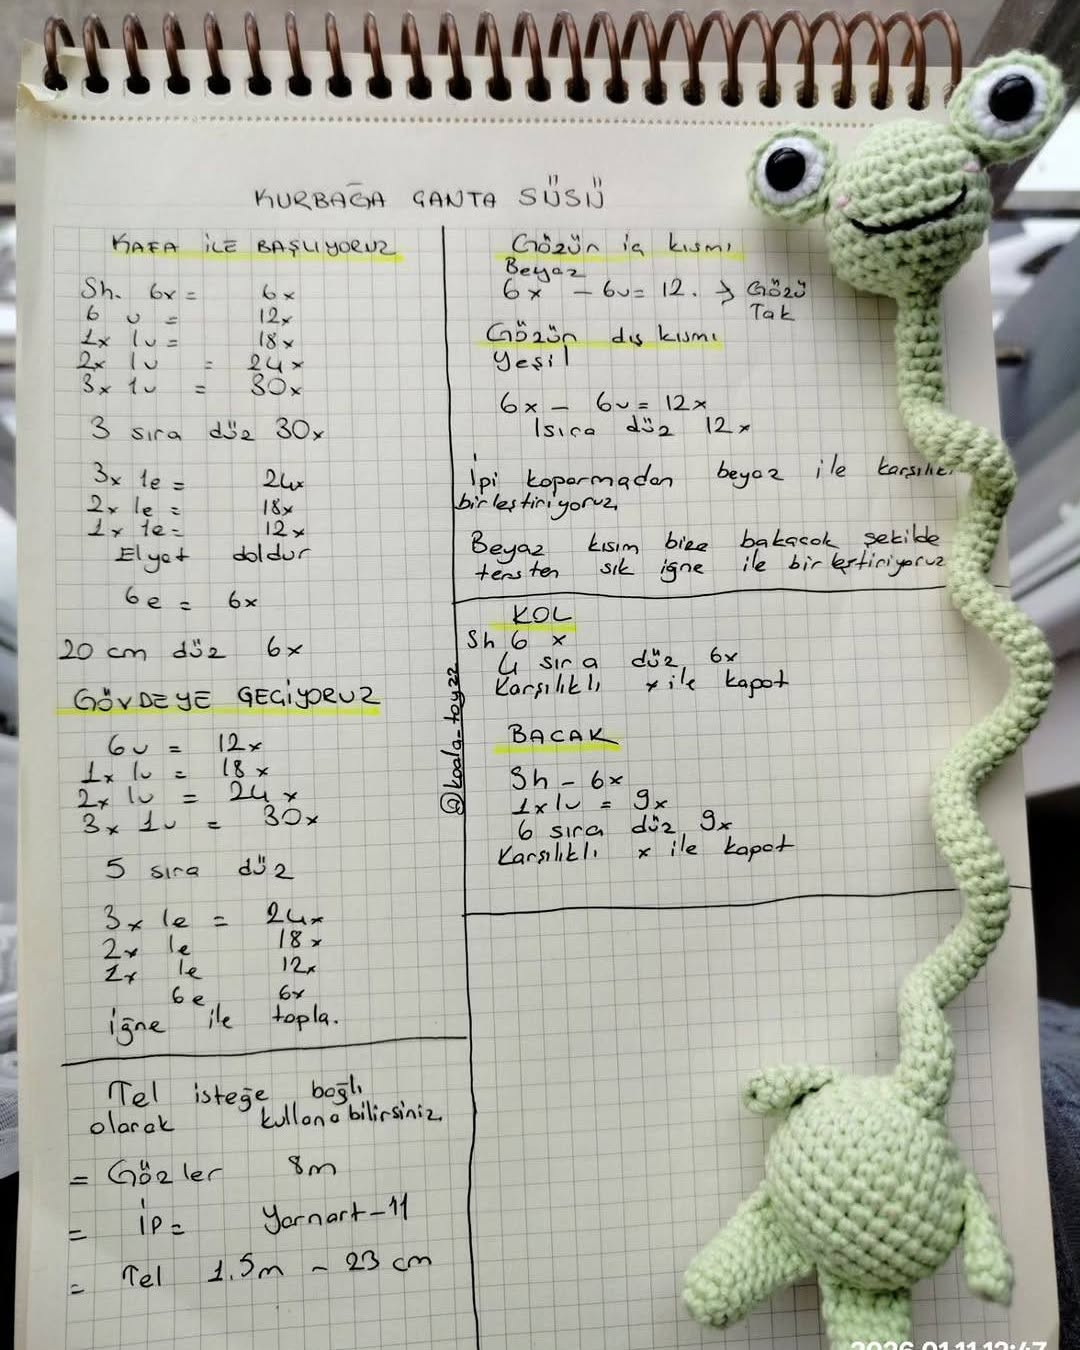 KURBAĞA ÇANTA SÜSÜ
KAFA İLE BAŞLIYORUZ
Sh. 6x = 6x
6 v = 12x
1x 1v = 18x
2x 1v = 24x
3x 1v = 30x
3 sıra düz 30x
3x 1e = 24x
2x 1e = 18x
1x 1e = 12x
Elyat doldur
6e = 6x
20 cm düz 6x
GÖVDEYE GEÇİYORUZ
6v = 12x
1x 1v = 18x
2x 1v = 24x
3x 1v = 30x
5 sıra düz
3x 1e = 24x
2x 1e 18x
1x 1e 12x
6e 6x
iğne ile topla.
Tel isteğe bağlı
olarak kullanabilirsiniz.
= Gözler 8m
= İp = Yarnart-11
= Tel 1.5m - 23 cm
@koala_toyzz
Gözün iç kısmı
Beyaz
6x - 6v = 12. → Gözü
Tak
Gözün dış kısmı
Yeşil
6x - 6v = 12x
1sıra düz 12x
İpi koparmadan beyaz ile karşılık
birleştiriyoruz.
Beyaz kısım bize bakacak şekilde
tersten sık iğne ile birleştiriyoruz
KOL
Sh 6 x
4 sıra düz 6x
Karşılıklı x ile kapat
BACAK
Sh - 6x
1x1v = 9x
6 sıra düz 9x
Karşılıklı x ile kapat
2026.01.11 12:47